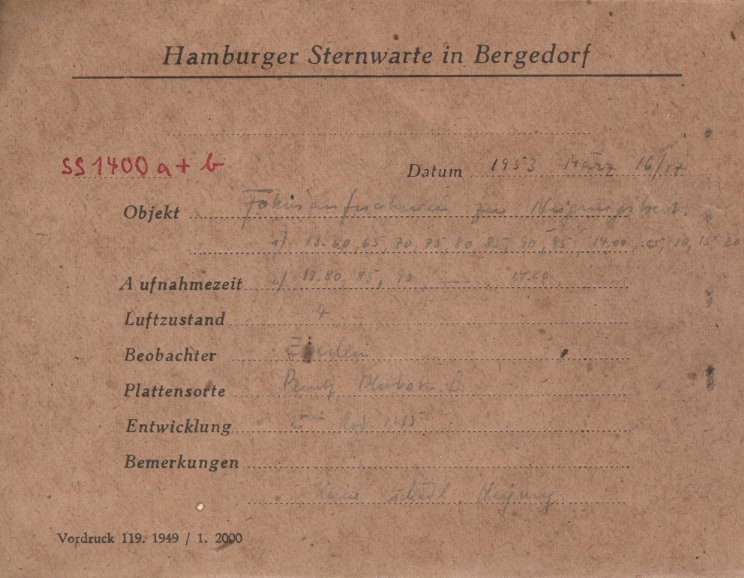 Hamburger Sternwarte in Bergedorf
SS 1400 a + b
Datum 1953 März 16/17
Objekt Fokusaufnahmen zur
1) 13.60, 65, 70, 75, 80, 85, 90, 95, 14.00, 05, 10, 15 20
Aufnahmezeit 2) 13.80, 85, 90, 14.00
Luftzustand 4
Beobachter
Plattensorte
Entwicklung 5 min Rod. 1:15
Bemerkungen
Keine schädl. Neigung
Vordruck 119. 1949 / 1. 2000